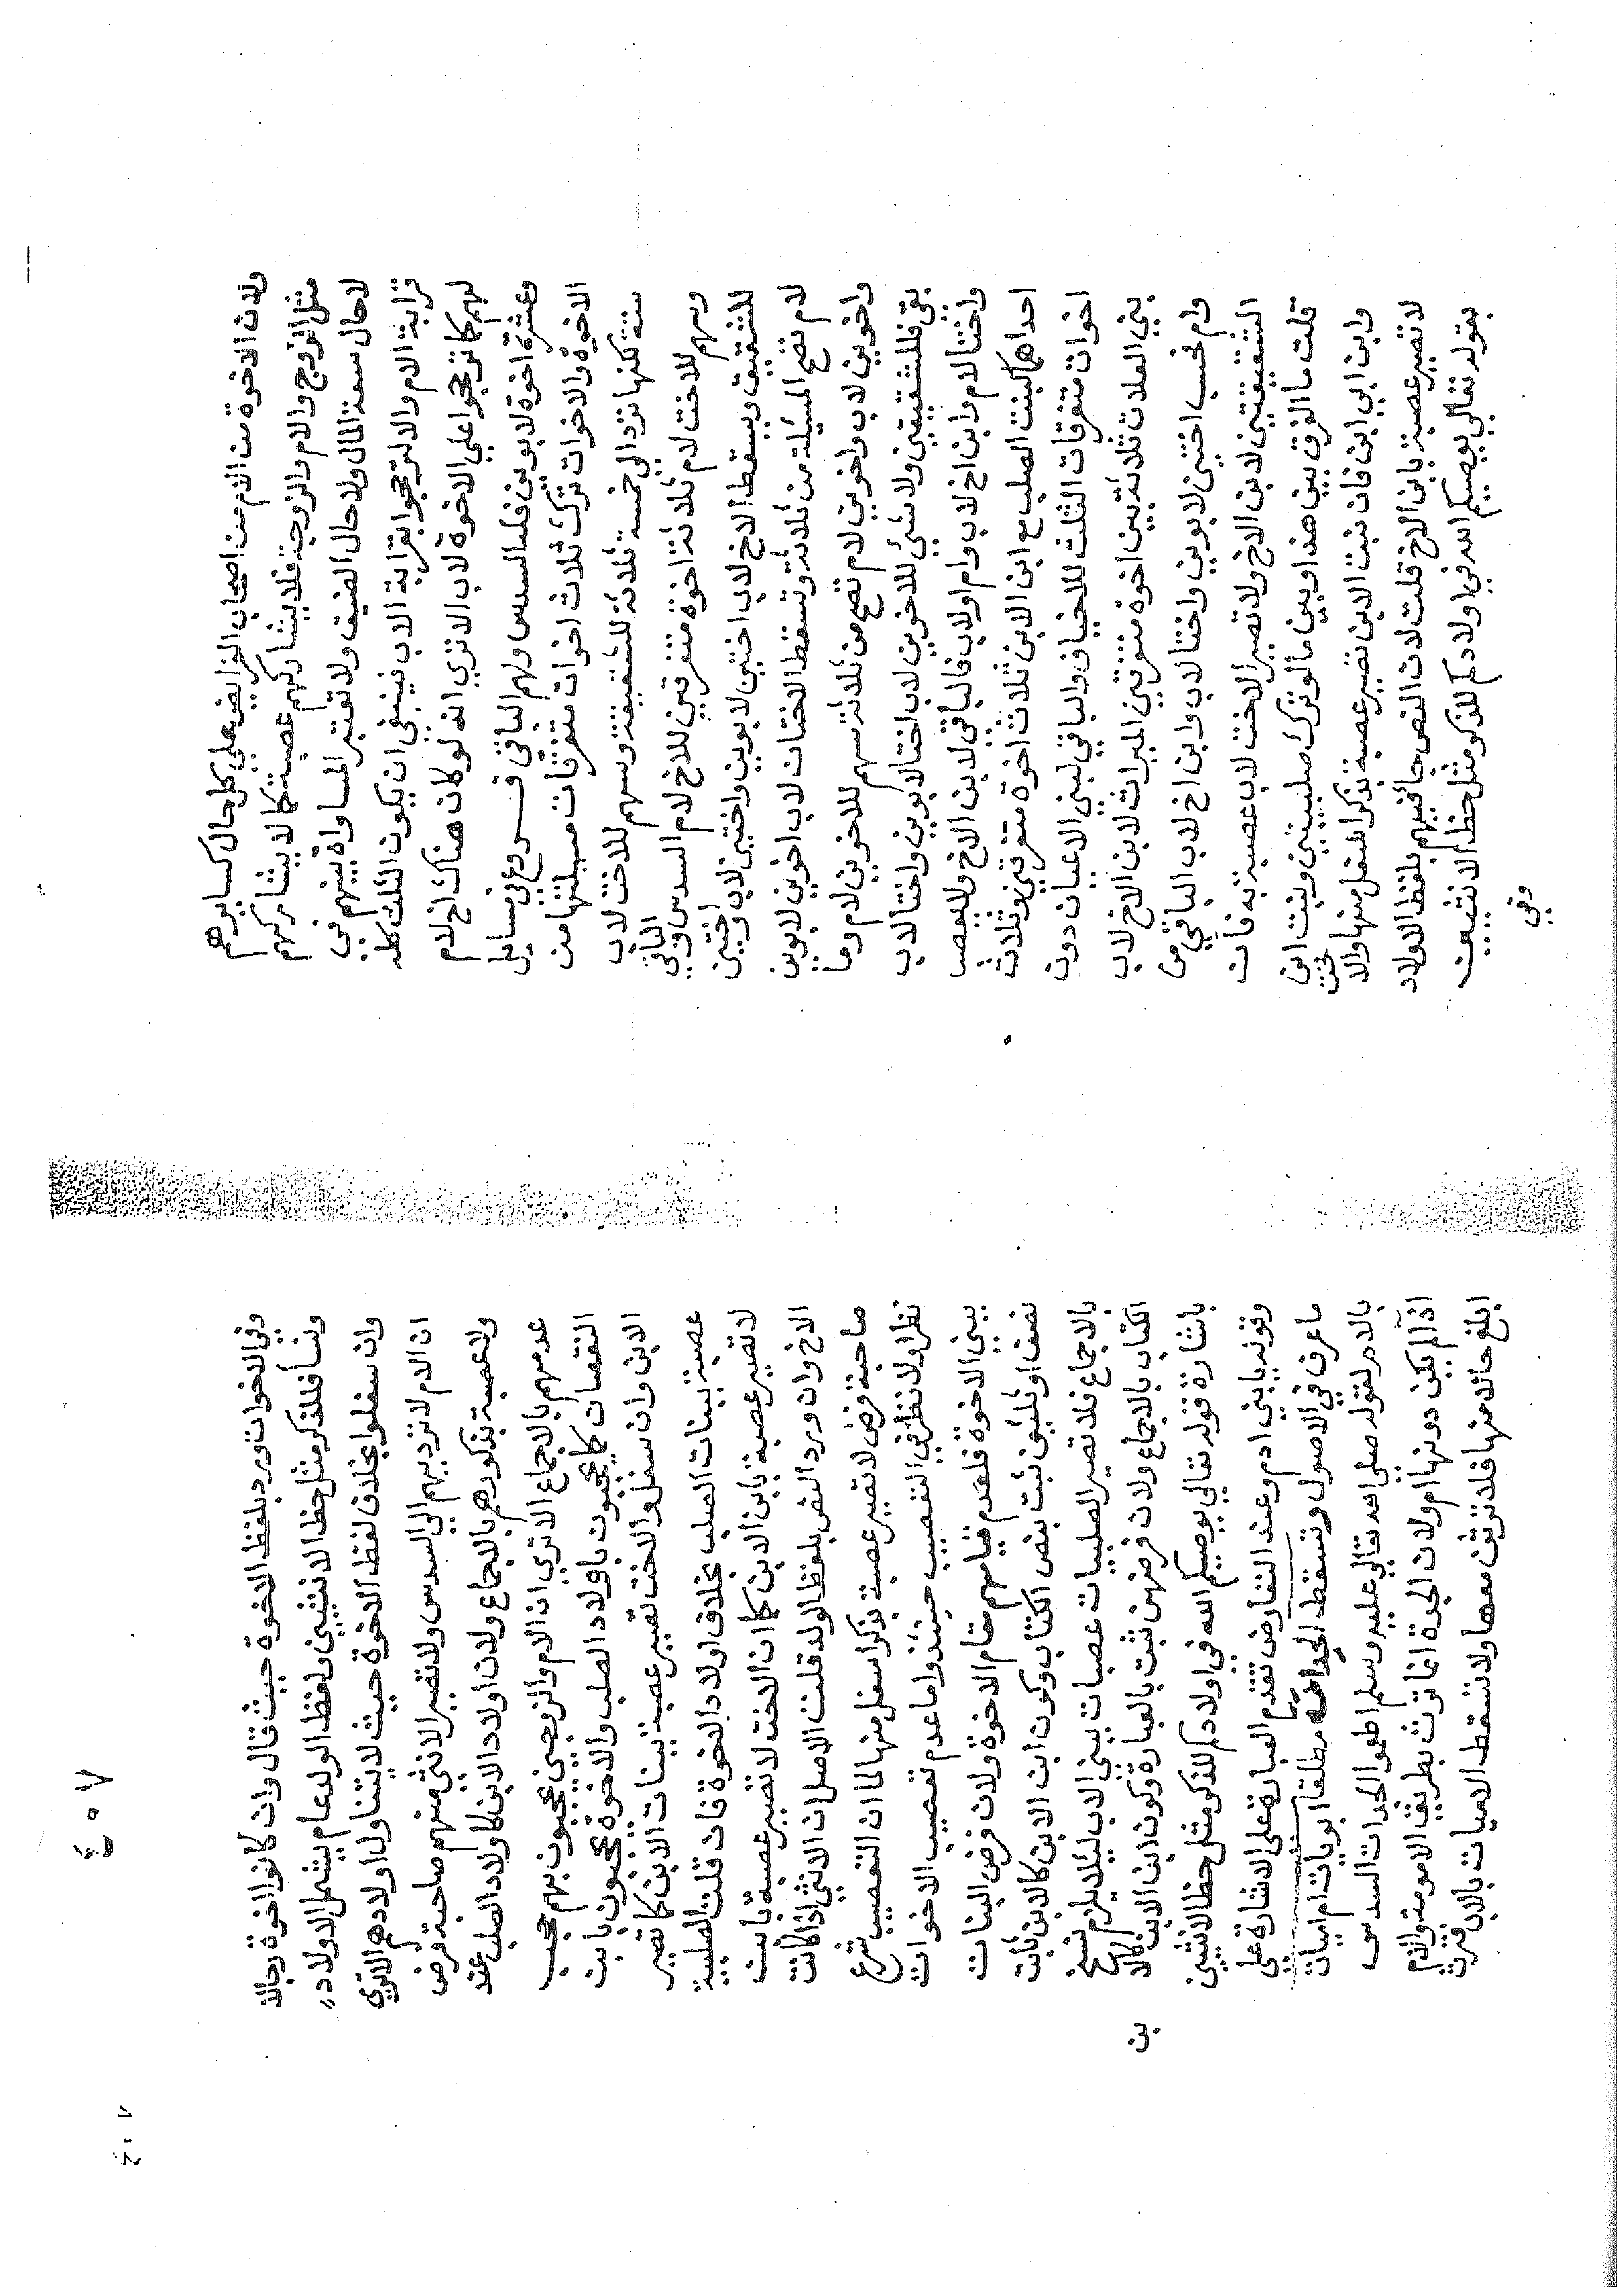 ولان الاخوة من الام من اصحاب الفرايض علي كل حال كسايرهم
مثل الزوج والام والزوجة فلا يشاركهم عصبة كما لا يشاركهم
لا حال سعة المال ولا حال الضيق ولا تعتبر المساواة بينهم في
قرابة الام والا لترجحوا بقرابة الاب فينبغي ان يكون الثلث كله
لهم كما ترجحوا علي الاخوة لاب الا تري انه لو كان هناك اخ لام
وعشرة اخوة لابوين فله السدس ولهم الباقي فروع في مسايل
الاخوة والاخوات ترك ثلاث اخوات متفرقات مسيلتها من
ستة لكنها ترد الي خمسة ثلاثة للشقيقة وسهم للاخت لاب
وسهم للاخت لام ثلاثة اخوة متفرقين للاخ لام السدس والباقي
للشقيق ويسقط الاخ لاب اختين لابوين واختين لاب واختين
لام تصح المسيلة من ثلاثة وتسقط الاختان لاب اخوين لابوين
واخوين لاب واخوين لام تصح من ثلاثة سهم للاخوين لام وما
بقي فللشقيقين ولا شيء للاخوين لاب اختا لابوين واختا لاب
واختا لام وابن اخ لاب وام اولاب فالباقي لابن الاخ ولا يعصب
احداهما كبنت الصلب مع ابن الابن ثلاث اخوة متفرقين وثلاث
اخوات متفرقات الثلث للاخياف والباقي لبني الاعيان دون
بني العلات ثلاثة بنين اخوة متفرقين الميراث لابن الاخ لاب
وام فحسب اختين لابوين واختا لاب وابن اخ لاب الباقي من
الشقيقتين لابن الاخ ولا تصير الاخت لاب عصبة به فان
قلت ما الفرق بين هذا وبين ما لو ترك صلبيتين وبنت ابن
وابن ابن ابن فان بنت الابن تصير عصبة بذكر اسفل منها والاخت
لا تصير عصبة بابن الاخ قلت لان النص جا فيهم بلفظ الاولاد
بقوله تعالي يوصيكم الله في اولادكم للذكر مثل حظ الانثيين
وفي
٤٠٧
٤٠٧
وفي الاخوات ورد بلفظ الاخوة حيث قال وان كانوا اخوة رجالا
ونسا فللذكر مثل حظ الانثيين ولفظ الولد عام يشمل الاولاد
وان سفلوا بخلاف لفظ الاخوة حيث لا يتناول اولادهم الا تري
ان الام لا ترد بهم الي السدس ولا تصير الانثي منهم صاحبة فرض
ولا عصبة بذكورهم بالاجماع ولان اولاد الابن كاولاد الصلب عند
عدمهم بالاجماع الا تري ان الام والزوجين يحجبون بهم حجب
النقصان كما يحجبون باولاد الصلب والاخوة يحجبون بابن
الابن وان سفل والاخت تصير عصبة ببنات الابن كما تصير
عصبة ببنات الصلب بخلاف اولاد الاخوة فان قلت الصلبية
لا تصير عصبة بابن الابن كما ان الاخت لا تصير عصبة بابن
الاخ وان ورد النص بلفظ الولد قلت الاصل ان الانثي اذا كانت
صاحبة فرض لا تصير عصبة بذكر اسفل منها لما ان التعصيب شرع
نظرا ولا نظر في التعصيب حينئذ واما عدم تعصيب الاخوات
ببني الاخوة فلعدم قيامهم مقام الاخوة ولان فرض البنات
نصف او ثلثين ثبت بنص الكتاب وكون ابن الابن كالابن ثابت
بالاجماع فلا تصير الصلبيات عصبات ببني الابن ليلا يلزم نسخ
الكتاب بالاجماع ولان فرضهن ثبت بالعبارة وكون ابن الابن كالابن
باشارة قوله تعالي يوصيكم الله في اولادكم للذكر مثل حظ الانثيين
وقوله يا بني ادم وعند التعارض تقدم العبارة علي الاشارة علي
ما عرف في الاصول وتسقط الجدات مطلقا ابويات ام اميات
بالام لقوله صلي الله تعالي عليه وسلم اطعموا الجدات السدس
اذا لم يكن دونها ام ولان الجدة انما ترث بطريق الامومة والام
ابلغ حالا منها فلا ترث معها ولا تسقط الاميات بالاب فترث